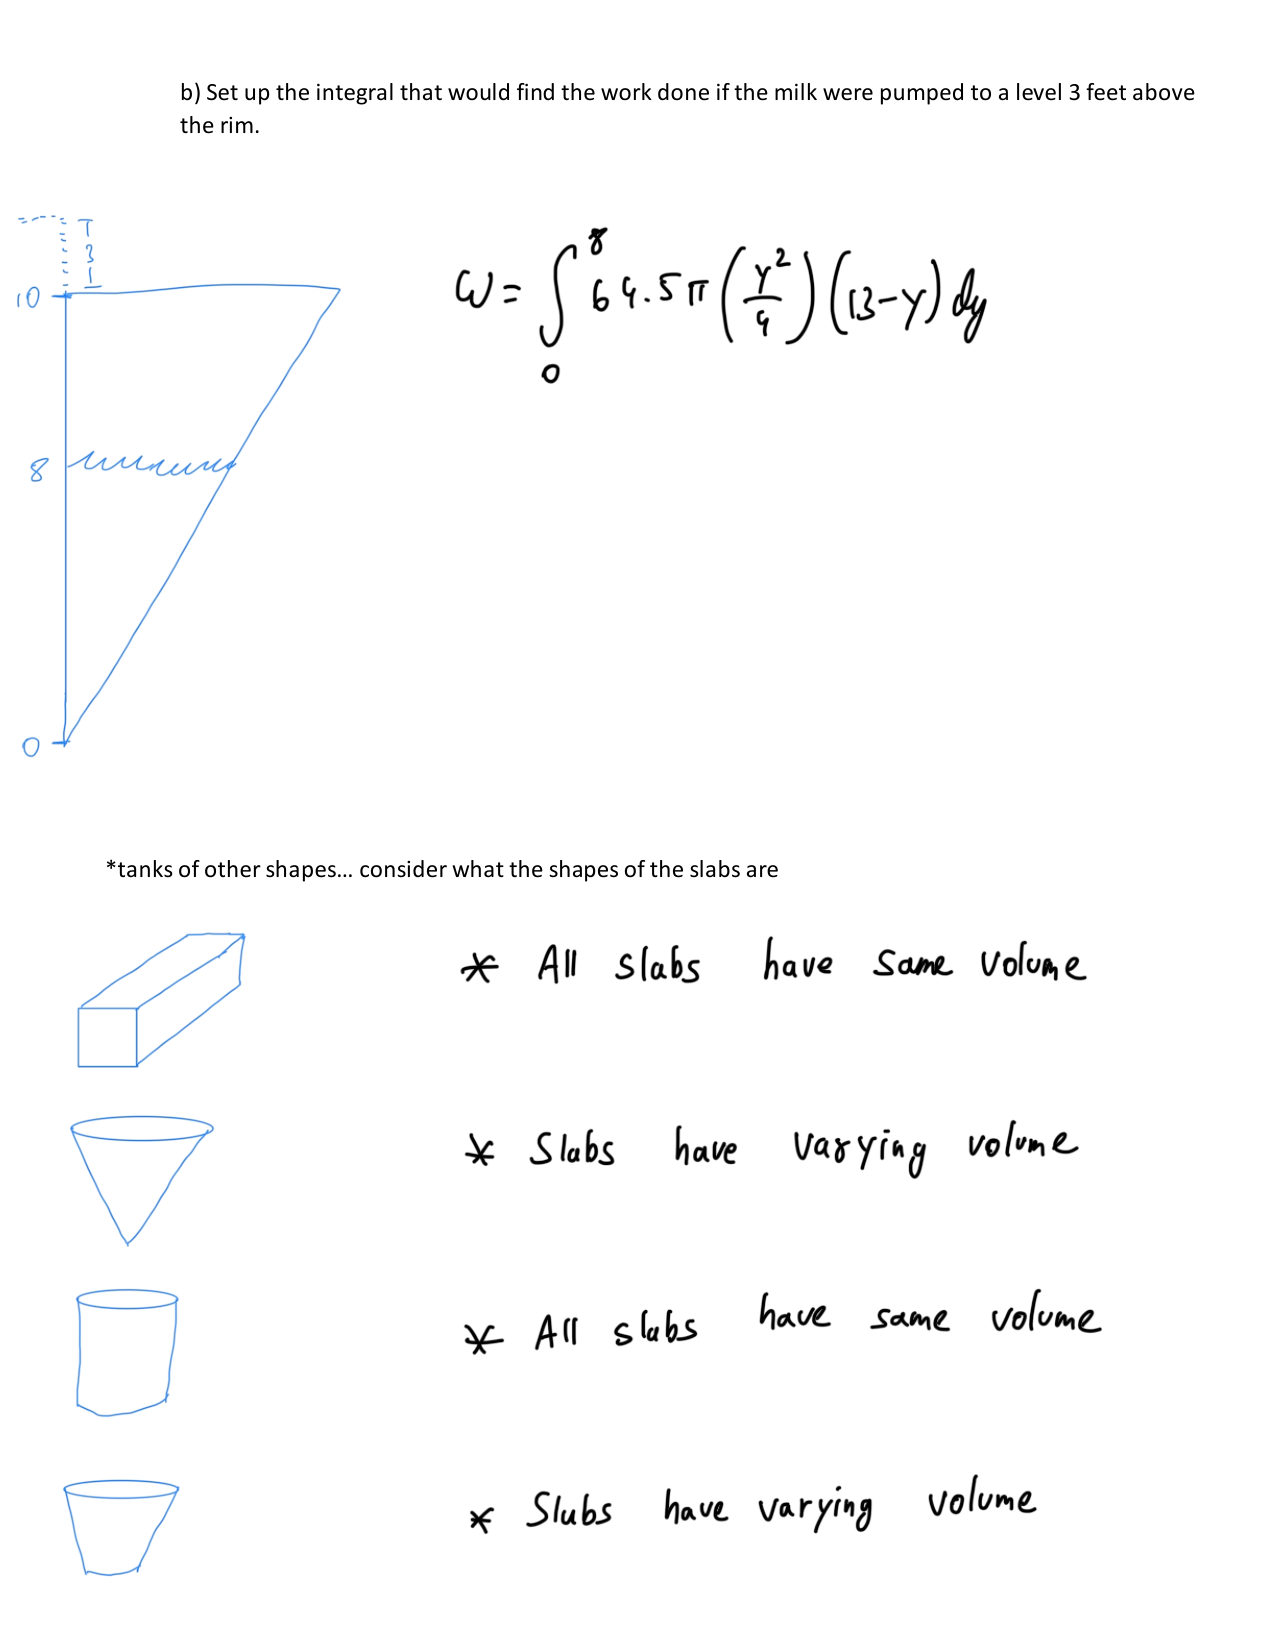 b) Set up the integral that would find the work done if the milk were pumped to a level 3 feet above
the rim.
T
3
1
10
8
0
W = ∫₀⁸ 64.5π (y²/4) (13-y) dy
*tanks of other shapes... consider what the shapes of the slabs are
* All slabs have same volume
* Slabs have varying volume
* All slabs have same volume
* Slabs have varying volume